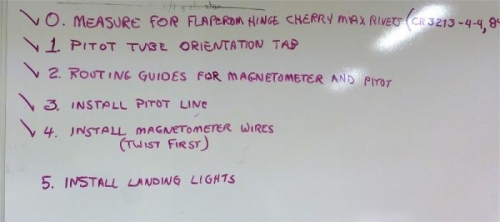 0. MEASURE FOR FLAPERON HINGE CHERRY MAX RIVETS (CR3213-4-4,
1. PITOT TUBE ORIENTATION TAB
2. ROUTING GUIDES FOR MAGNETOMETER AND PITOT
3. INSTALL PITOT LINE
4. INSTALL MAGNETOMETER WIRES
(TWIST FIRST)
5. INSTALL LANDING LIGHTS